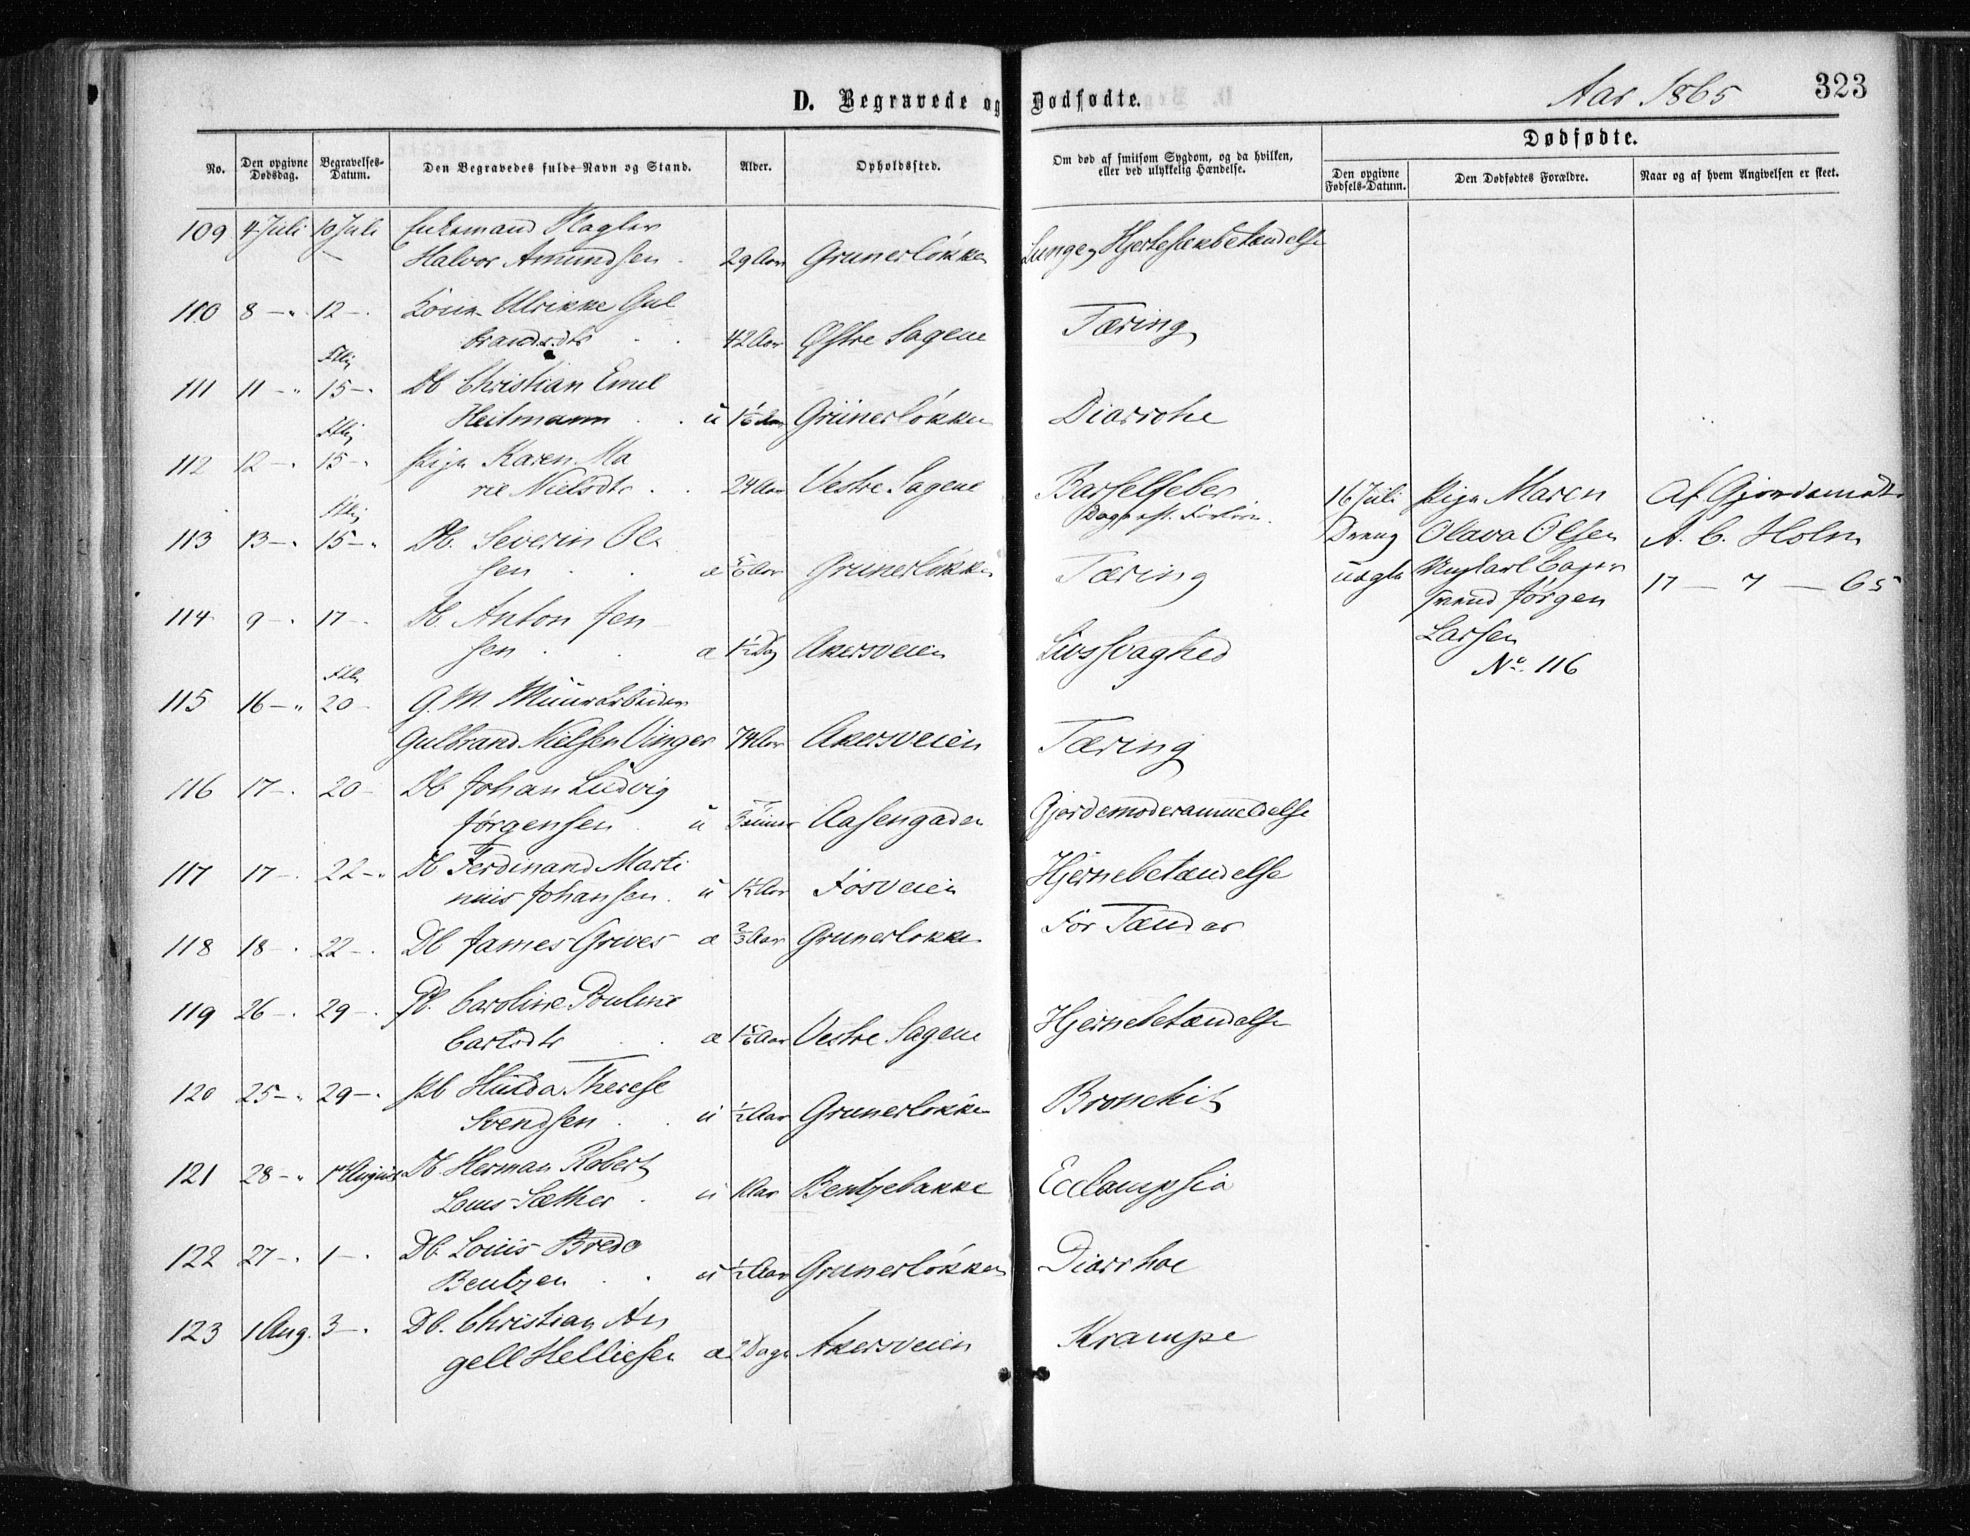 D. Begravede og Dødfødte.
Aar 1865
323
No.
Den opgivne Dødsdag.
Begravelses-Datum.
Den Begravedes fulde Navn og Stand.
Alder.
Opholdssted.
Om død af smitsom Sygdom, og da hvilken,
eller ved ulykkelig Hændelse.
Dødfødte.
Den opgivne Fødsels-Datum.
Den Dødfødtes Forældre.
Naar og af hvem Angivelsen er skeet.
109 4 Juli 10 Juli
Halvor Amundsen 29 Aar Grunerløkken Lunge og Hjertesækbetændelse
110 8 — " 12 — . Kone Ulrikke Gul
brandsdtr 42 Aar Østre Sagene Tæring
111 11 — " 15 — " Db Christian Emil
Heitmann u Grünerløkken Diarrohe
112 12 — " 15 — " Pige Karen Ma
rie Nielsdtr 24 Aar Vestre Sagene Barselfeber
113 13 — " 15 — " Db. Severin Ol
sen æ 5/6 Aar Grunerløkken Tæring
114 9 — " 17 — . Db Anton Jen
sen æ Akersveien Livssvaghed
115 16 — " 20 — G. M. Muurarbeider
Gulbrand Nielsen Vinger 74 Aar Akersveien Tæring
116 17 — . 20 — Db Johan Ludvig
Jørgensen u Aasengaden Gjordemoderanmeldelse
117 17 — . 22 — . Db Ferdinand Marti
nius Johansen u Fosveien Hjernebetændelse
118 18 — . 22 — . Db James Grives æ 2/3 Aar Grunerløkken For Tænder
119 26 — . 29 — . Pb. Caroline Pouline
Carlsdtr æ 1 5/6 Aar Vestre Sagene Hjernebetændelse
120 25 — " 29 — . Pb Hulda Therese
Svendsen u 1/2 Aar Grunerløkken Bronchit
121 28 — " 1st August Db. Herman Robert
Louis Sæther u 1 Aar Bentzebakke Ecclampsia
122 27 — . 1 — . Db. Louis Breda
Bentzen u 1/2 Aar Grunerløkken Diarrhoe
123 1 Aug. 3 — . Db. Christian An
gell Helliesen æ 2 Dage Akersveien Krampe
16 Juli Pige Maren Af Gjordemoder
Dreng Olava Olsen A. C. Holm
uægte Ungkarl 17 — 7 — 65
Jørgen
Larsen
No. 116